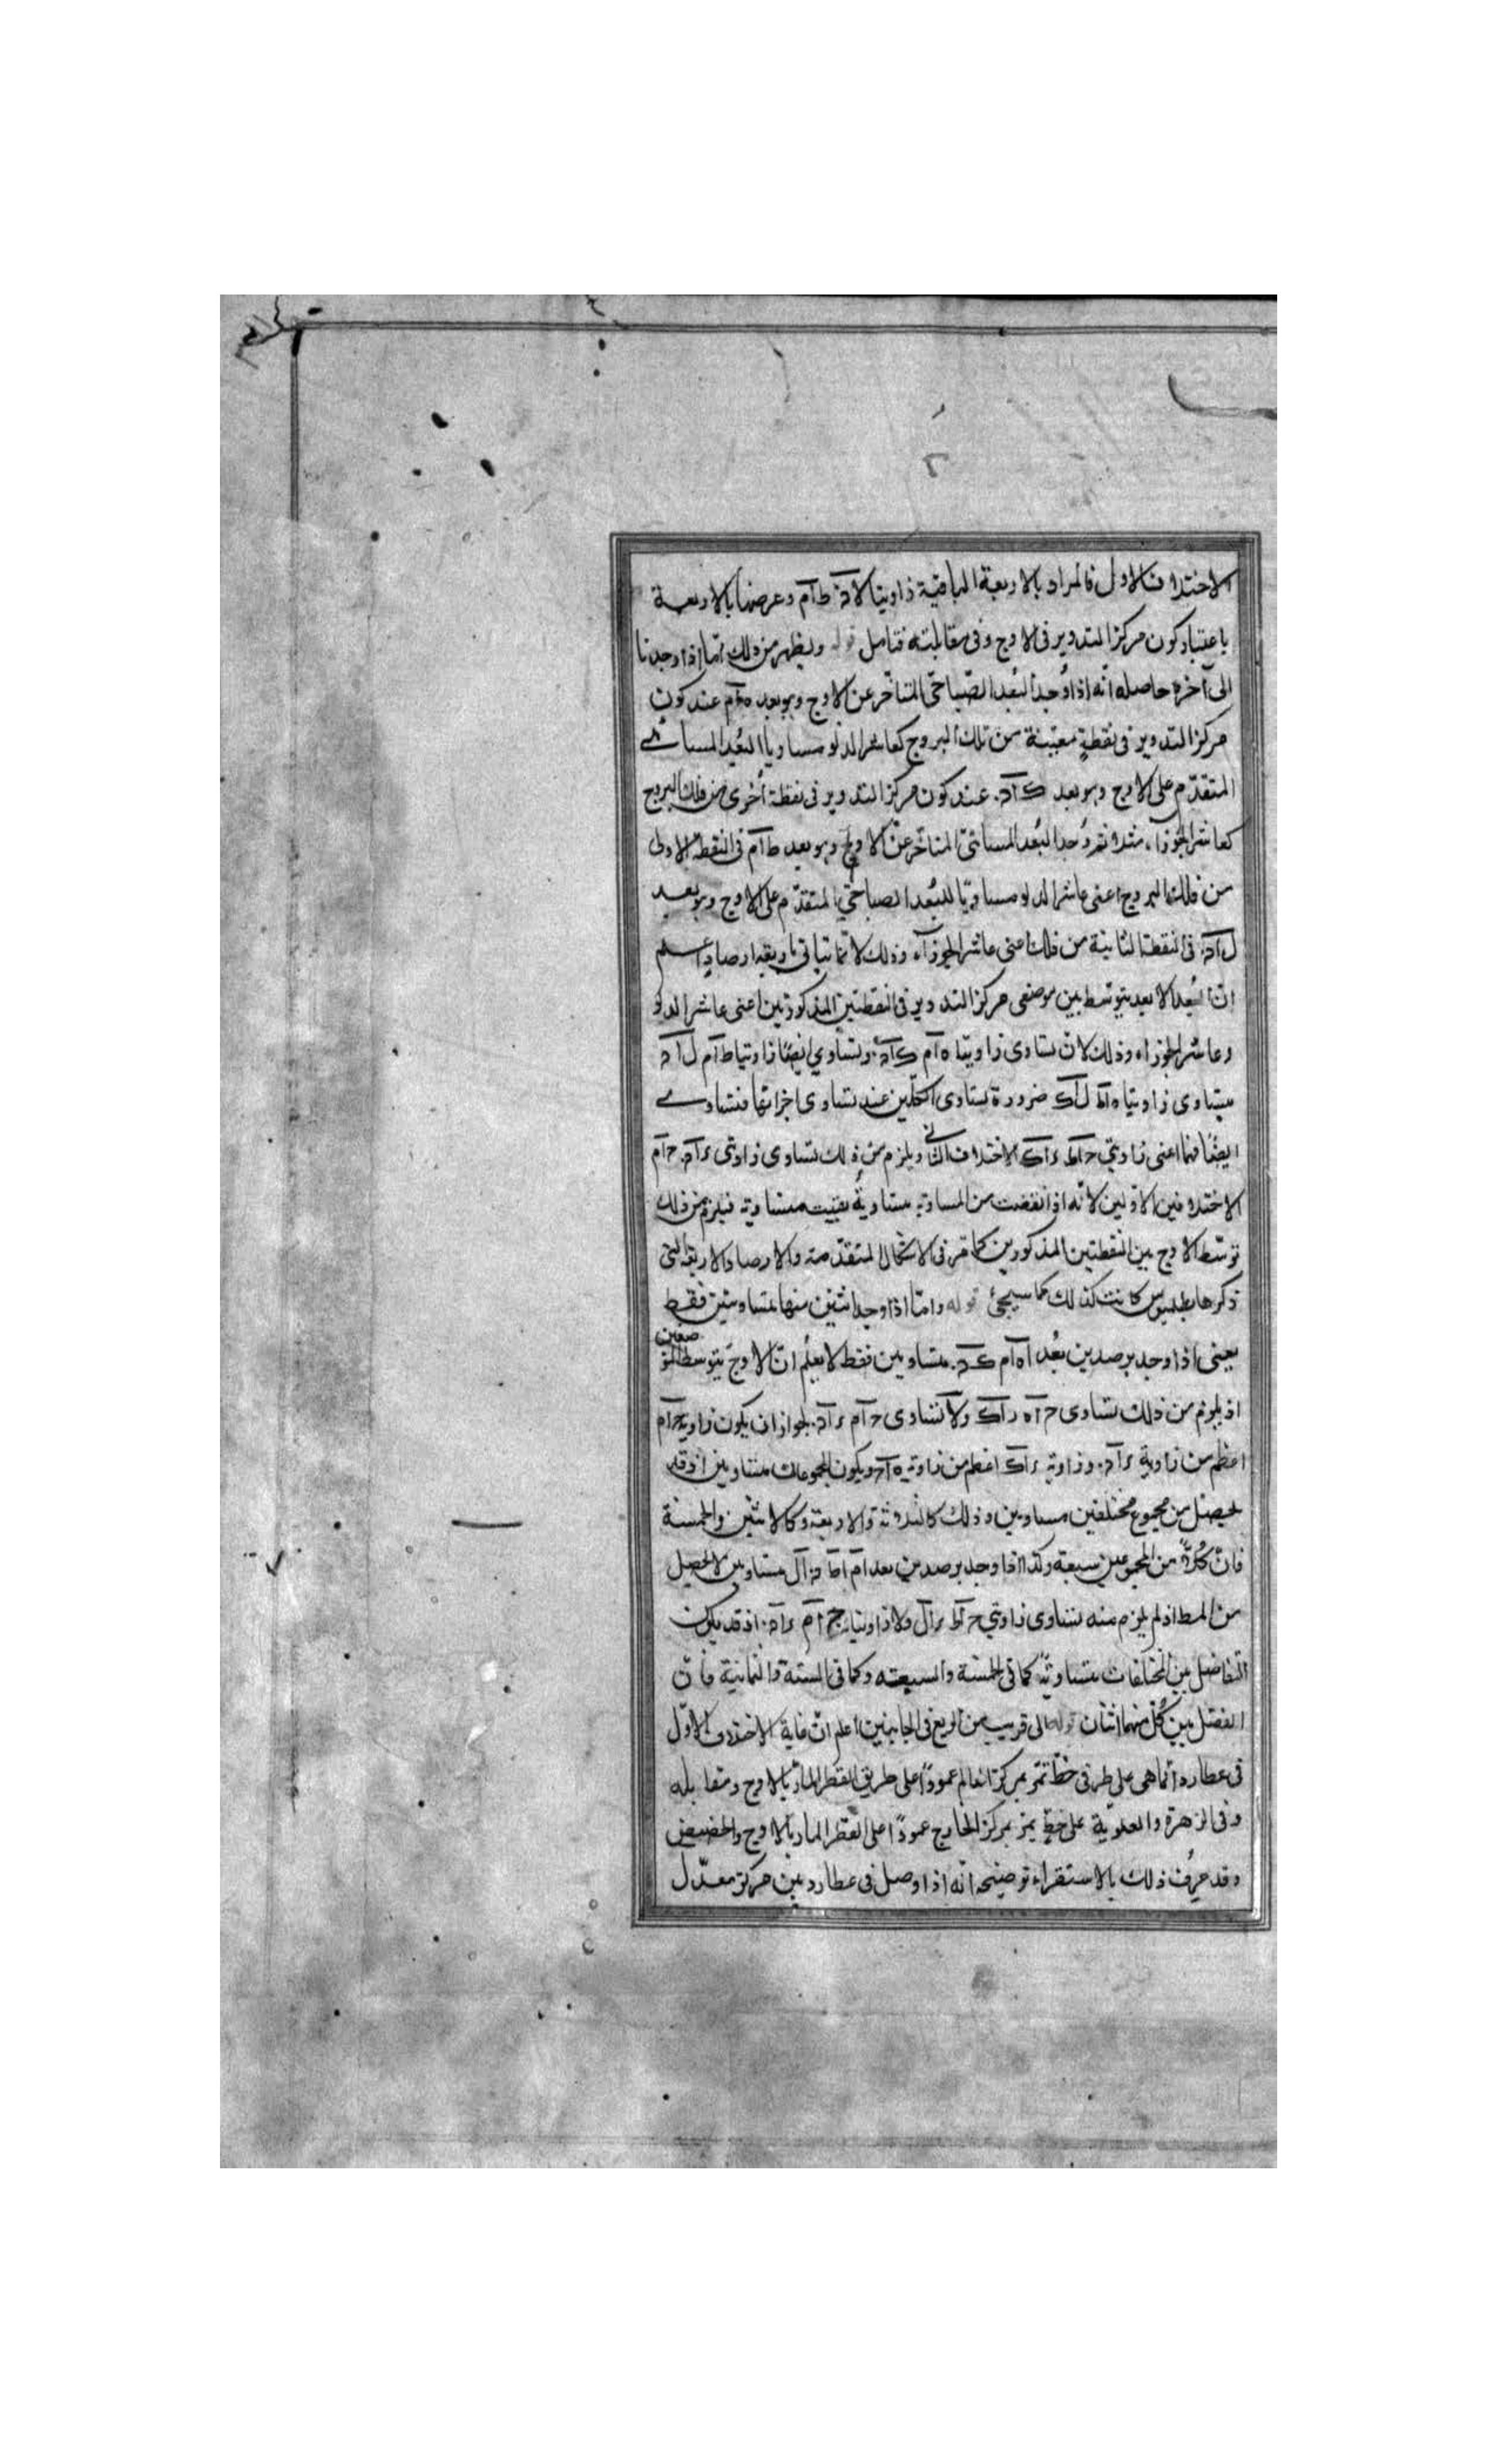 الاختلاف الاول فالمراد بالاربعة الباقية زاويتا لاد طام وعرضها بالاربعة
باعتبار كون مركز التدوير فى الاوج وفى مقابلته فتامل قوله ويظهر من ذلك امّا اذا وجدنا
الى آخره حاصله انّه اذا وُجد البُعد الصّباحىّ المتاخّر عن الاوج وهو بعد ه‍ام عند كون
مركز التدوير فى نقطةٍ معيّنة من تلك البروج كعاشر الدلو مساوياً البُعد المسائى
المتقدّم على الاوج وهو بعد ك‍اد عند كون مركز التدوير فى نقطة أخرى من فلك البروج
كعاشر الجوزآء مثلا ثم وُجد البُعد المسائىّ المتاخّر عن الاوج وهو بعد طام فى النقطة الاولى
من فلك البروج اعنى عاشر الدلو مساوياً للبُعد الصباحىّ المتقدّم على الاوج وهو بعد
لاد فى النقطة الثانية من فلك اعنى عاشر الجوزآء وذلك لا تما يتاتى باربعة ارصادٍ اعلم
انّ البُعد الابعد يتوسّط بين موضعى مركز التدوير فى النقطتين المذكورتين اعنى عاشر الدلو
وعاشر الجوزاء وذلك لانّ بتساوى زاويتا ه‍ام ك‍اد وتساوي ايضًا زاويتا طام لاد
يتساوى زاويتا ه‍اط لاك ضرورة تساوى الكلّين عند تساوى اجزائها فتساوى
ايضًا نصفاهما اعنى زاويتي حاط راك الاختلاف الثانى ويلزم من ذلك تساوى زاويتى راد حام
الاختلافين الاوّلين لانّه اذا نقصت من المساوية مساويةُ بقيت متساوية فيلزم من ذلك
توسّط الاوج بين النقطتين المذكورين كما مرّ فى الاشكال المتقدّمة والارصاد الاربعة التى
ذكرها بطلميوس كانت كذلك كما سيجئ قوله وامّا اذا وجد اثنين منها متساويتين فقط
يعنى اذا وجد برصدين بُعد اه‍ام ك‍اد متساويين فقط لا يعلم انّ الاوج يتوسط الموضعين
اذ يلزم من ذلك تساوى حاه راك ولا تساوى حام راد لجواز ان يكون زاوية حام
اعظم من زاوية راد وزاوية راك اعظم من زاوية ه‍اح ويكون المجموعات متساويين اذ قد
يحصل من مجموع مختلفين مساويين وذلك كالثلاثة والاربعة وكالاثنين والخمسة
فانّ كُلاً من المجموعين سبعة وكذا اذا وجد برصدين بعد ام اط د ال متساويين لا يحصل
من المط اذ لم يلزم منه تساوى زاويتي حاط رال ولا زاويتا حام راد اذ قد يكون
التفاضل بين المختلفات متساويًا كما فى الخمسة والسبعة وكما فى الستة والثمانية فانّ
الفضل بين كُلّ منهما اثنان قوله الى قريب من الربع فى الجانبين اعلم انّ غاية الاختلاف الاوّل
فى عطارد انّما هى على طرفى خطّ تمرّ بمركز العالم عموداً على طريق القطر المارّ بالاوج ومقابله
وفى الزهرة والعلويّة على خطٍّ يمرّ بمركز الخارج عموداً على القطر المار بالاوج والحضيض
وقد عرُف ذلك بالاستقراء توضيحه انّه اذا وصل فى عطارد بين مركز معدّل